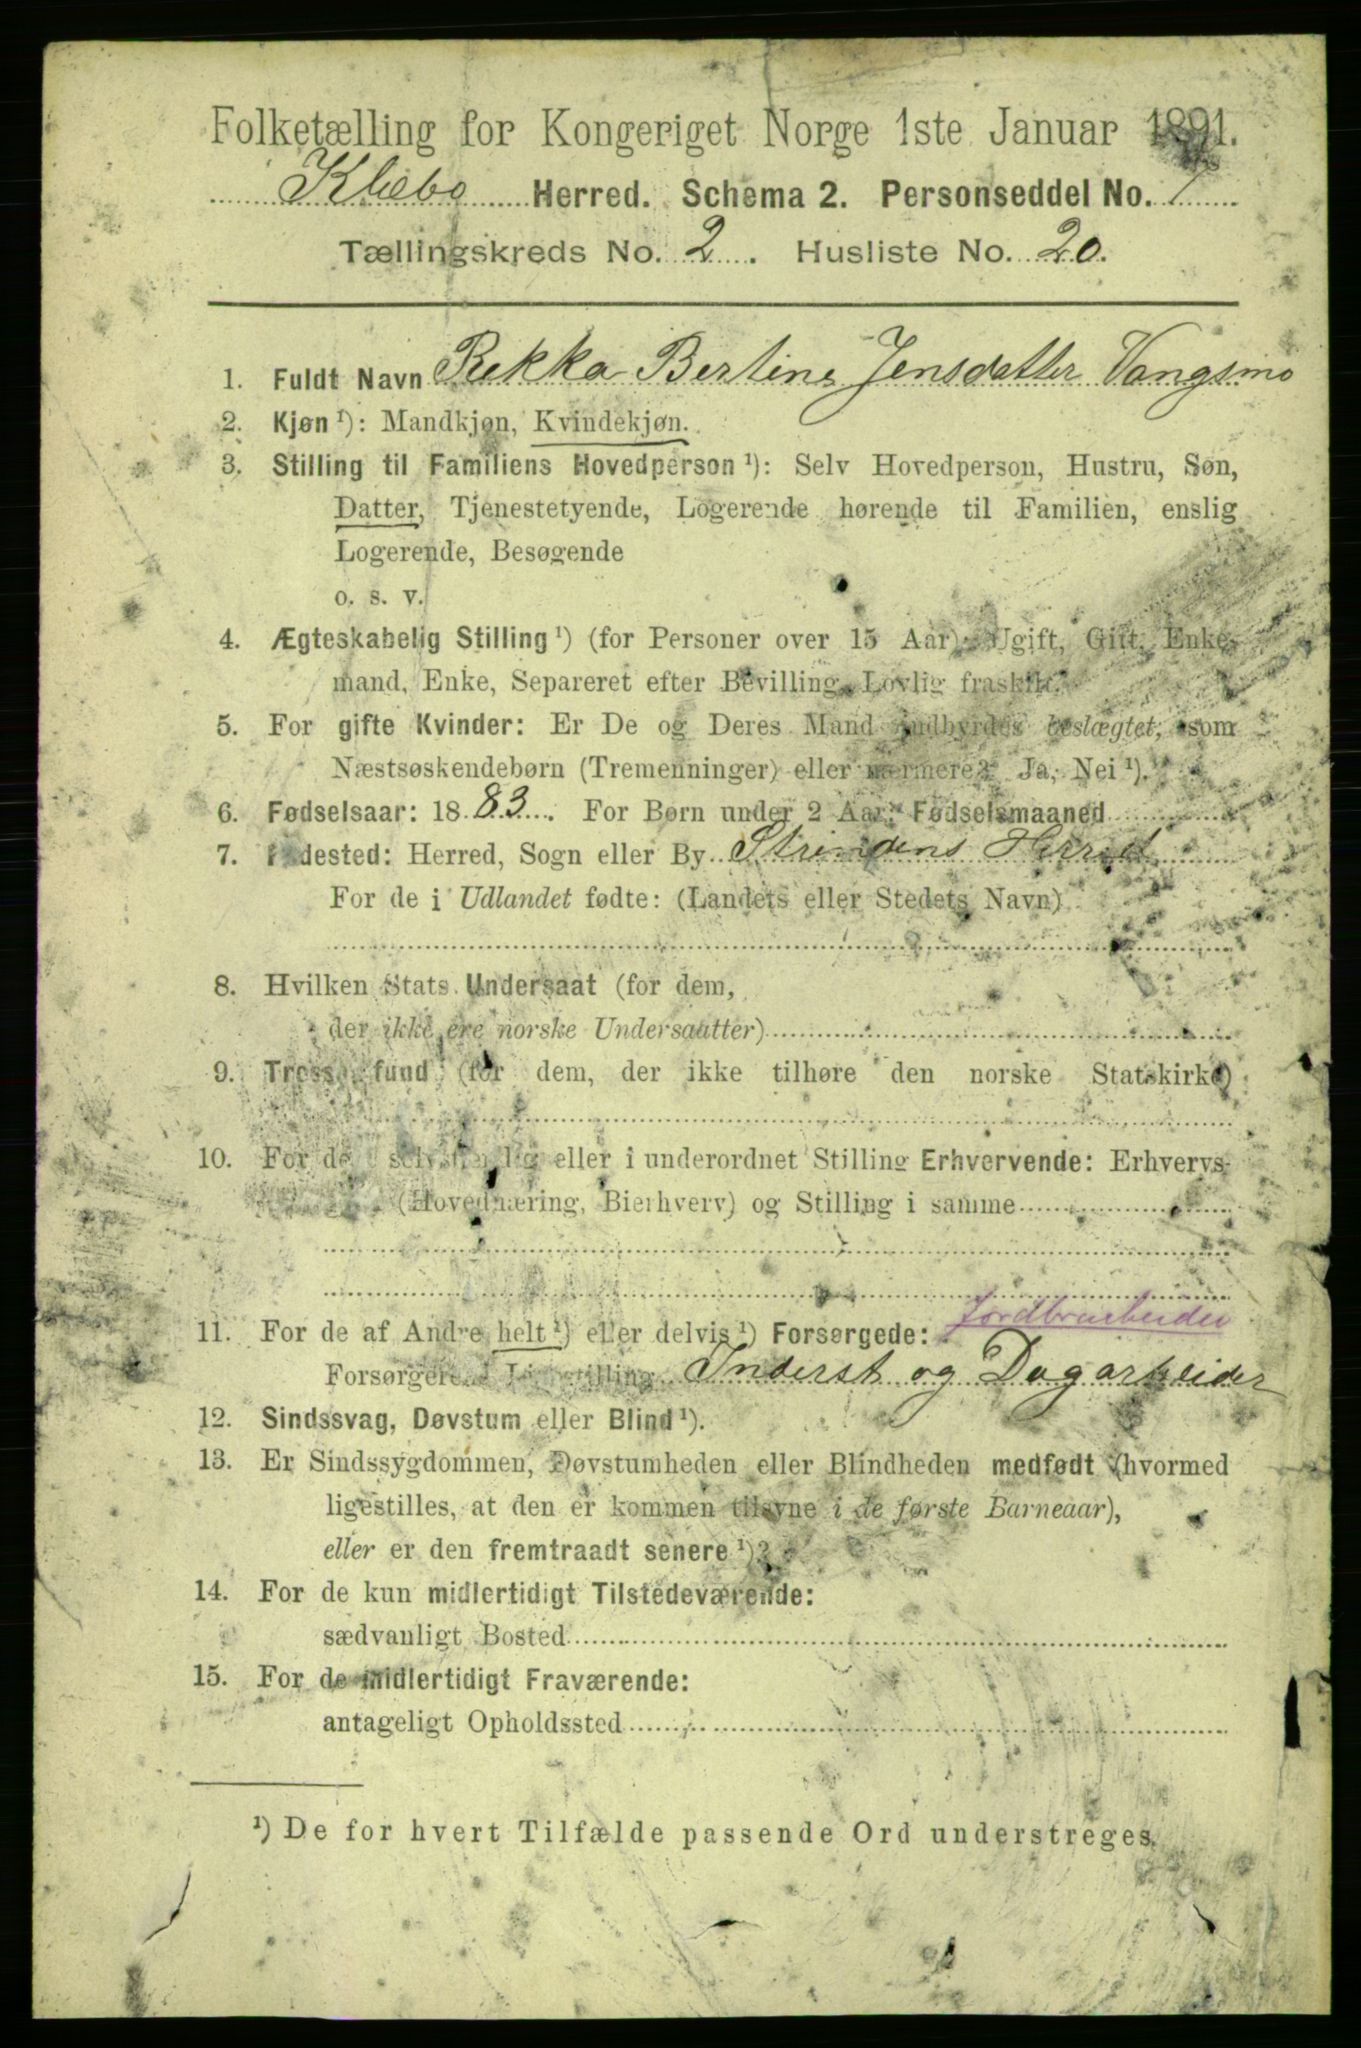 Folketælling for Kongeriget Norge 1ste Januar 1891.
Klæbo Herred. Schema 2. Personseddel No.
Tællingskreds No. 2. Husliste No. 20.
1. Fuldt Navn Rekka Bertine Jensdatter Vangsmo
2. Kjøn ¹): Mandkjøn, Kvindekjøn.
3. Stilling til Familiens Hovedperson ¹): Selv Hovedperson, Hustru, Søn,
Datter, Tjenestetyende, Logerende hørende til Familien, enslig
Logerende, Besøgende
o. s. v.
4. Ægteskabelig Stilling ¹) (for Personer over 15 Aar): Ugift, Gift, Enke-
mand, Enke, Separeret efter Bevilling, Lovlig fraskilt.
5. For gifte Kvinder: Er De og Deres Mand indbyrdes beslægtet, som
Næstsøskendebørn (Tremenninger) eller nærmere? Ja, Nei ¹).
6. Fødselsaar: 1883. For Børn under 2 Aar: Fødselsmaaned
7. Fødested: Herred, Sogn eller By Strindens Herred
For de i Udlandet fødte: (Landets eller Stedets Navn)
8. Hvilken Stats Undersaat (for dem,
der ikke ere norske Undersaatter)
9. Trossamfund (for dem, der ikke tilhøre den norske Statskirke)
10. For de selvstændig eller i underordnet Stilling Erhvervende: Erhvervs-
(Hovednæring, Bierhverv) og Stilling i samme
Jordbrarbeider
11. For de af Andre helt ¹) eller delvis ¹) Forsørgede:
Forsørgerens Livsstilling Inderst og Dagarbeider
12. Sindssvag, Døvstum eller Blind ¹).
13. Er Sindssygdommen, Døvstumheden eller Blindheden medfødt (hvormed
ligestilles, at den er kommen tilsyne i de første Barneaar),
eller er den fremtraadt senere ¹)?
14. For de kun midlertidigt Tilstedeværende:
sædvanligt Bosted
15. For de midlertidigt Fraværende:
antageligt Opholdssted
¹) De for hvert Tilfælde passende Ord understreges.